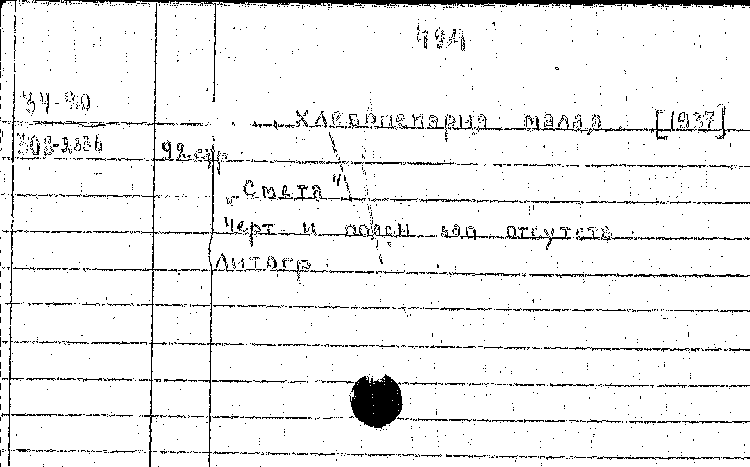 494
34-90
Хлебопекарня малая [1937]
92 стр
„Смета"
Черт и поясн зап отсутств
Литогр